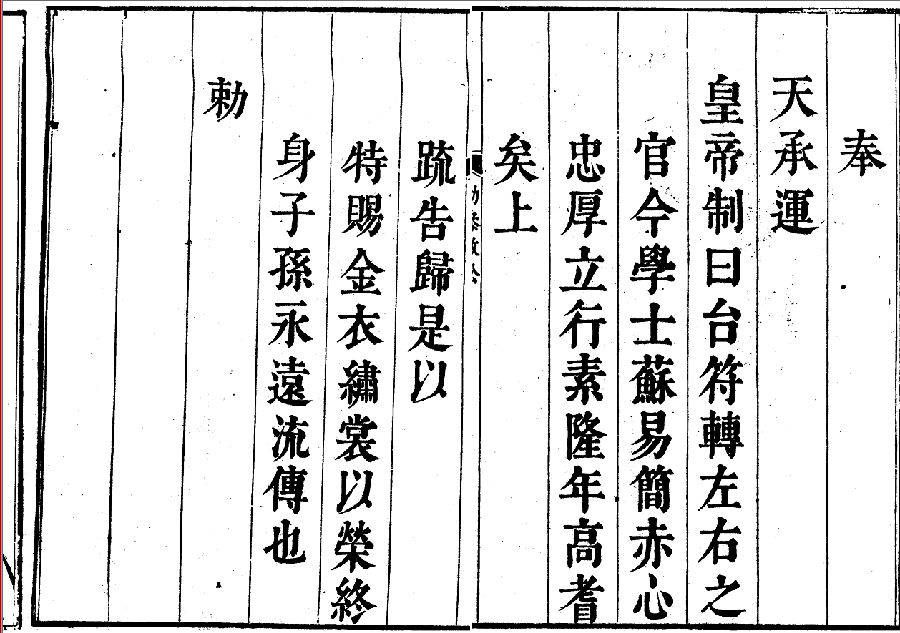 奉
天承運
皇帝制曰台符轉左右之
官今學士蘇易簡赤心
忠厚立行素隆年高耆
矣上
疏告歸是以
特賜金衣繡裳以榮終
身子孫永遠流傳也
勅